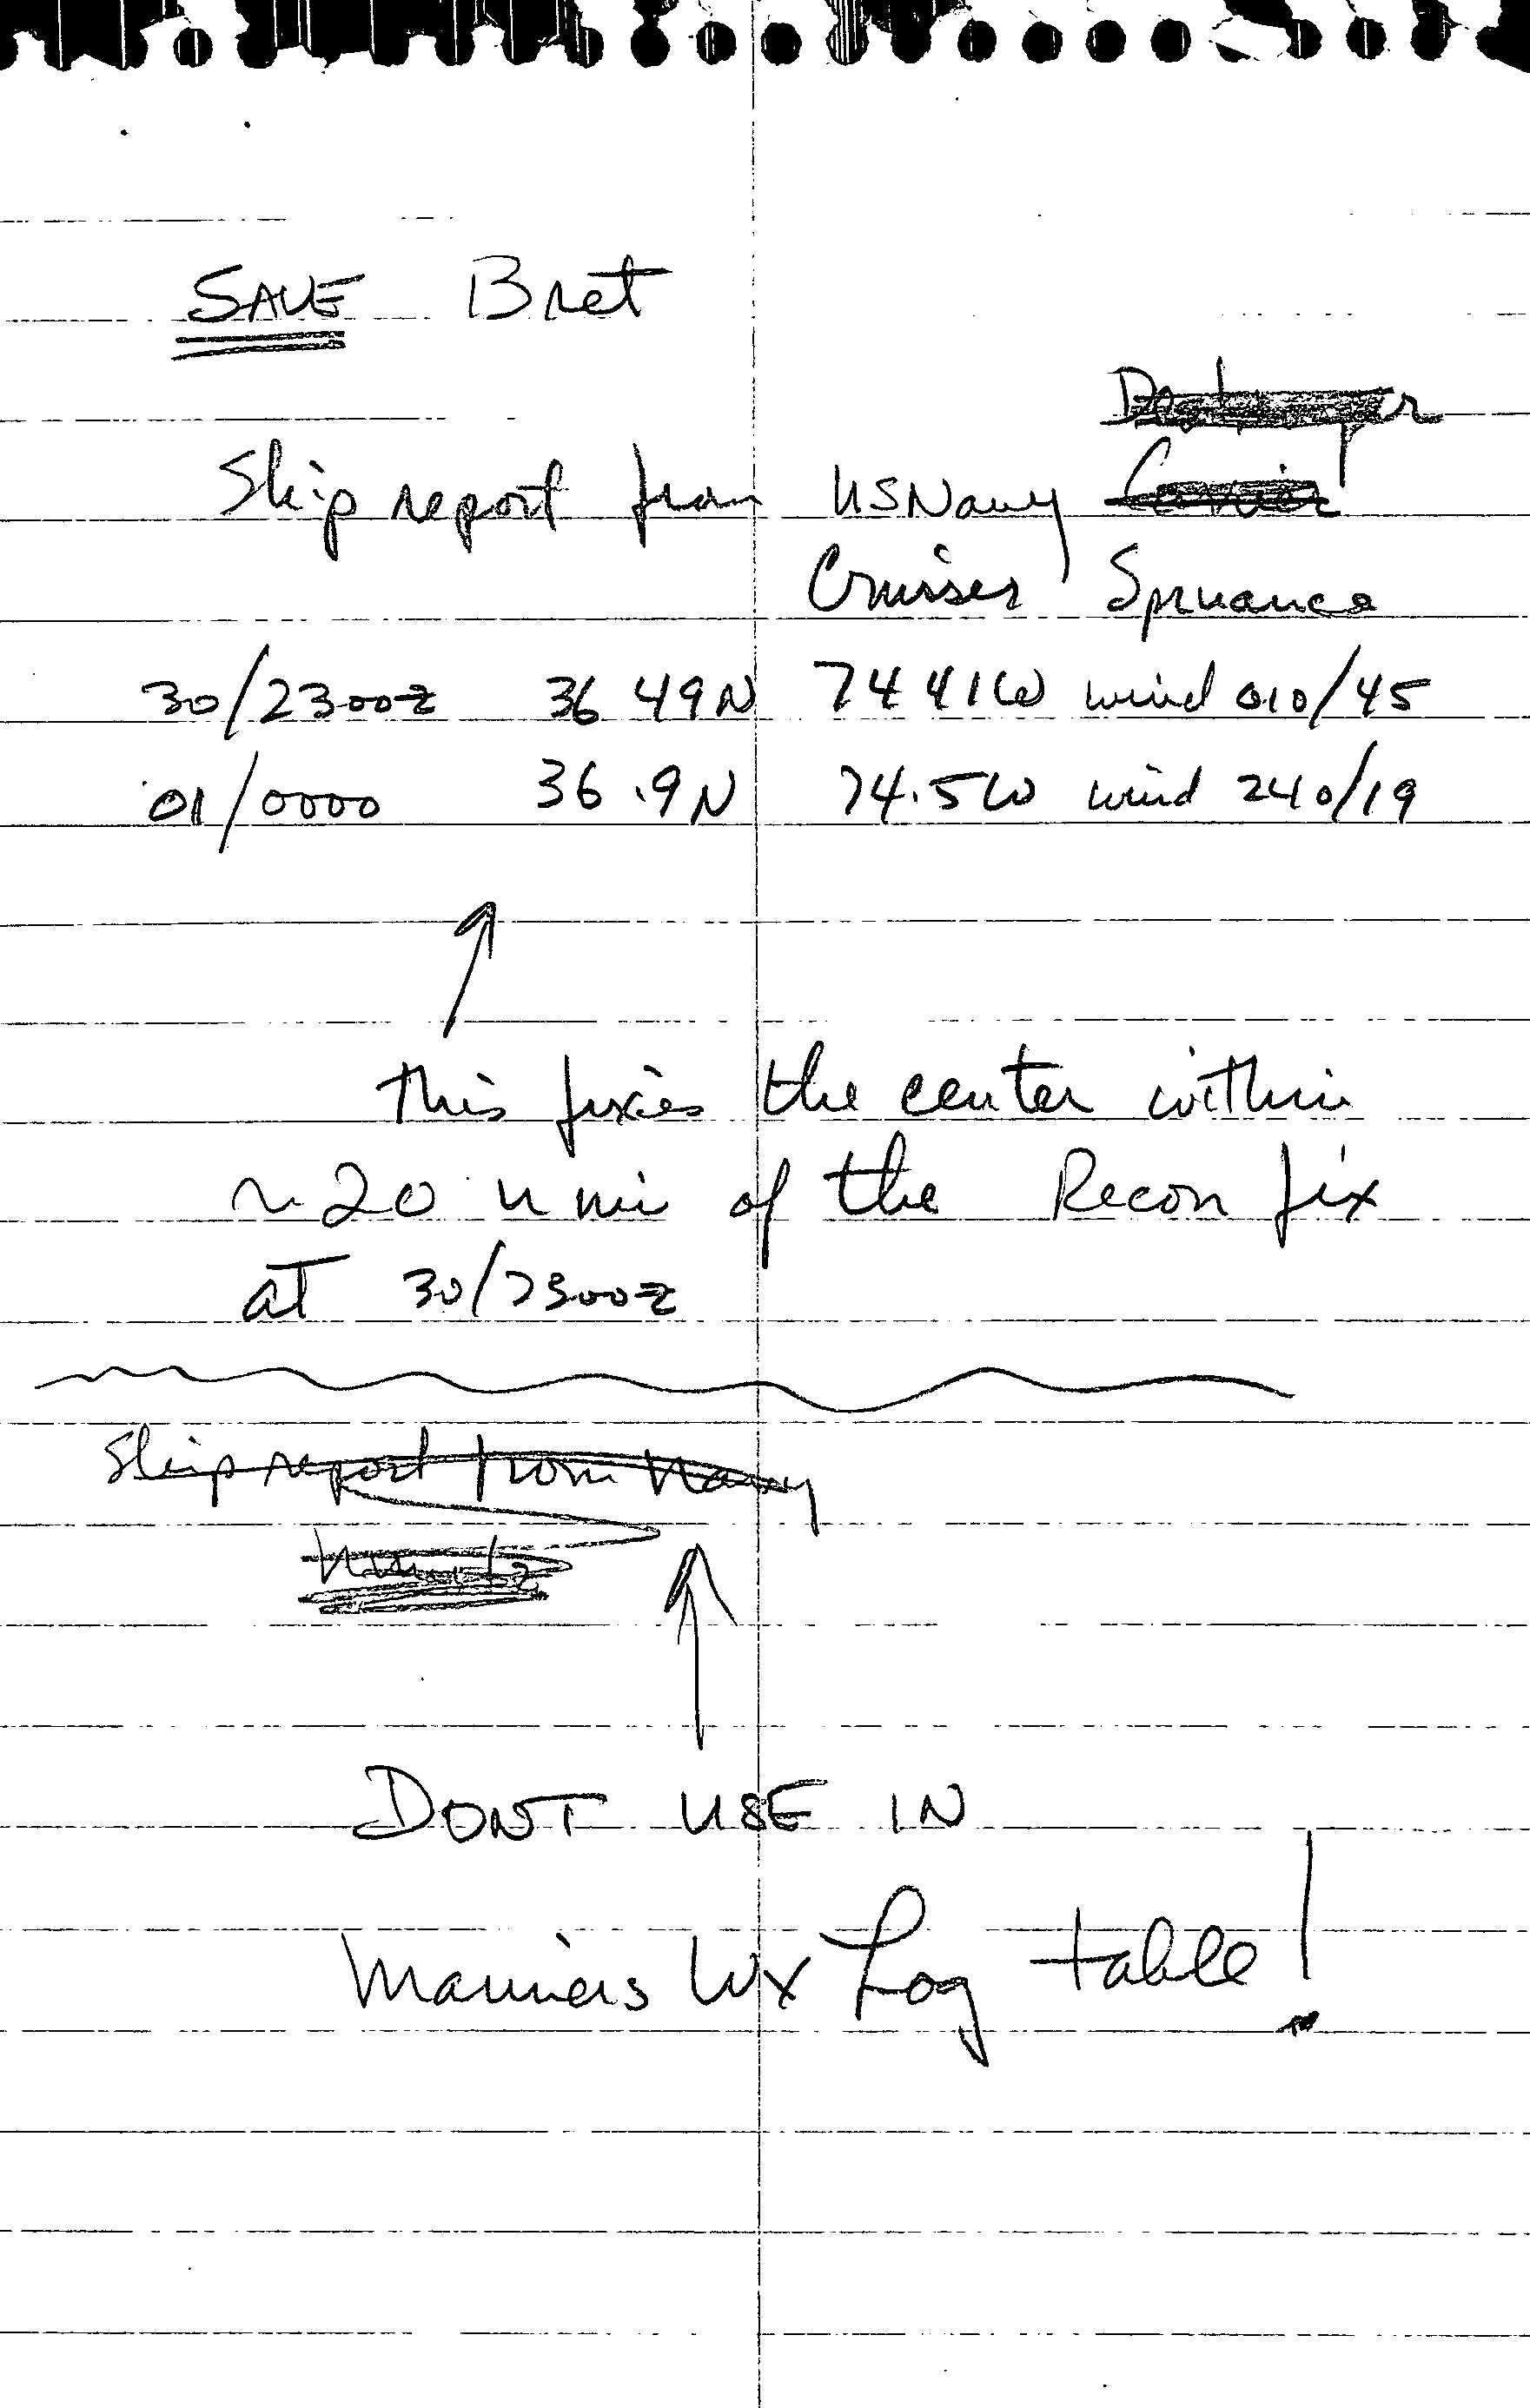 SAVE Bret
Destroyer
Ship report from US Navy Carrier
Cruisser Spruance
30/2300z 36 49N 74 41W wind 010/45
01/0000 36.9N 74.5W wind 240/19
this fixies the center within
~20 n mi of the Recon fix
at 30/2300z
Ship report from Navy
DONT USE IN
Mariners Wx Log table!